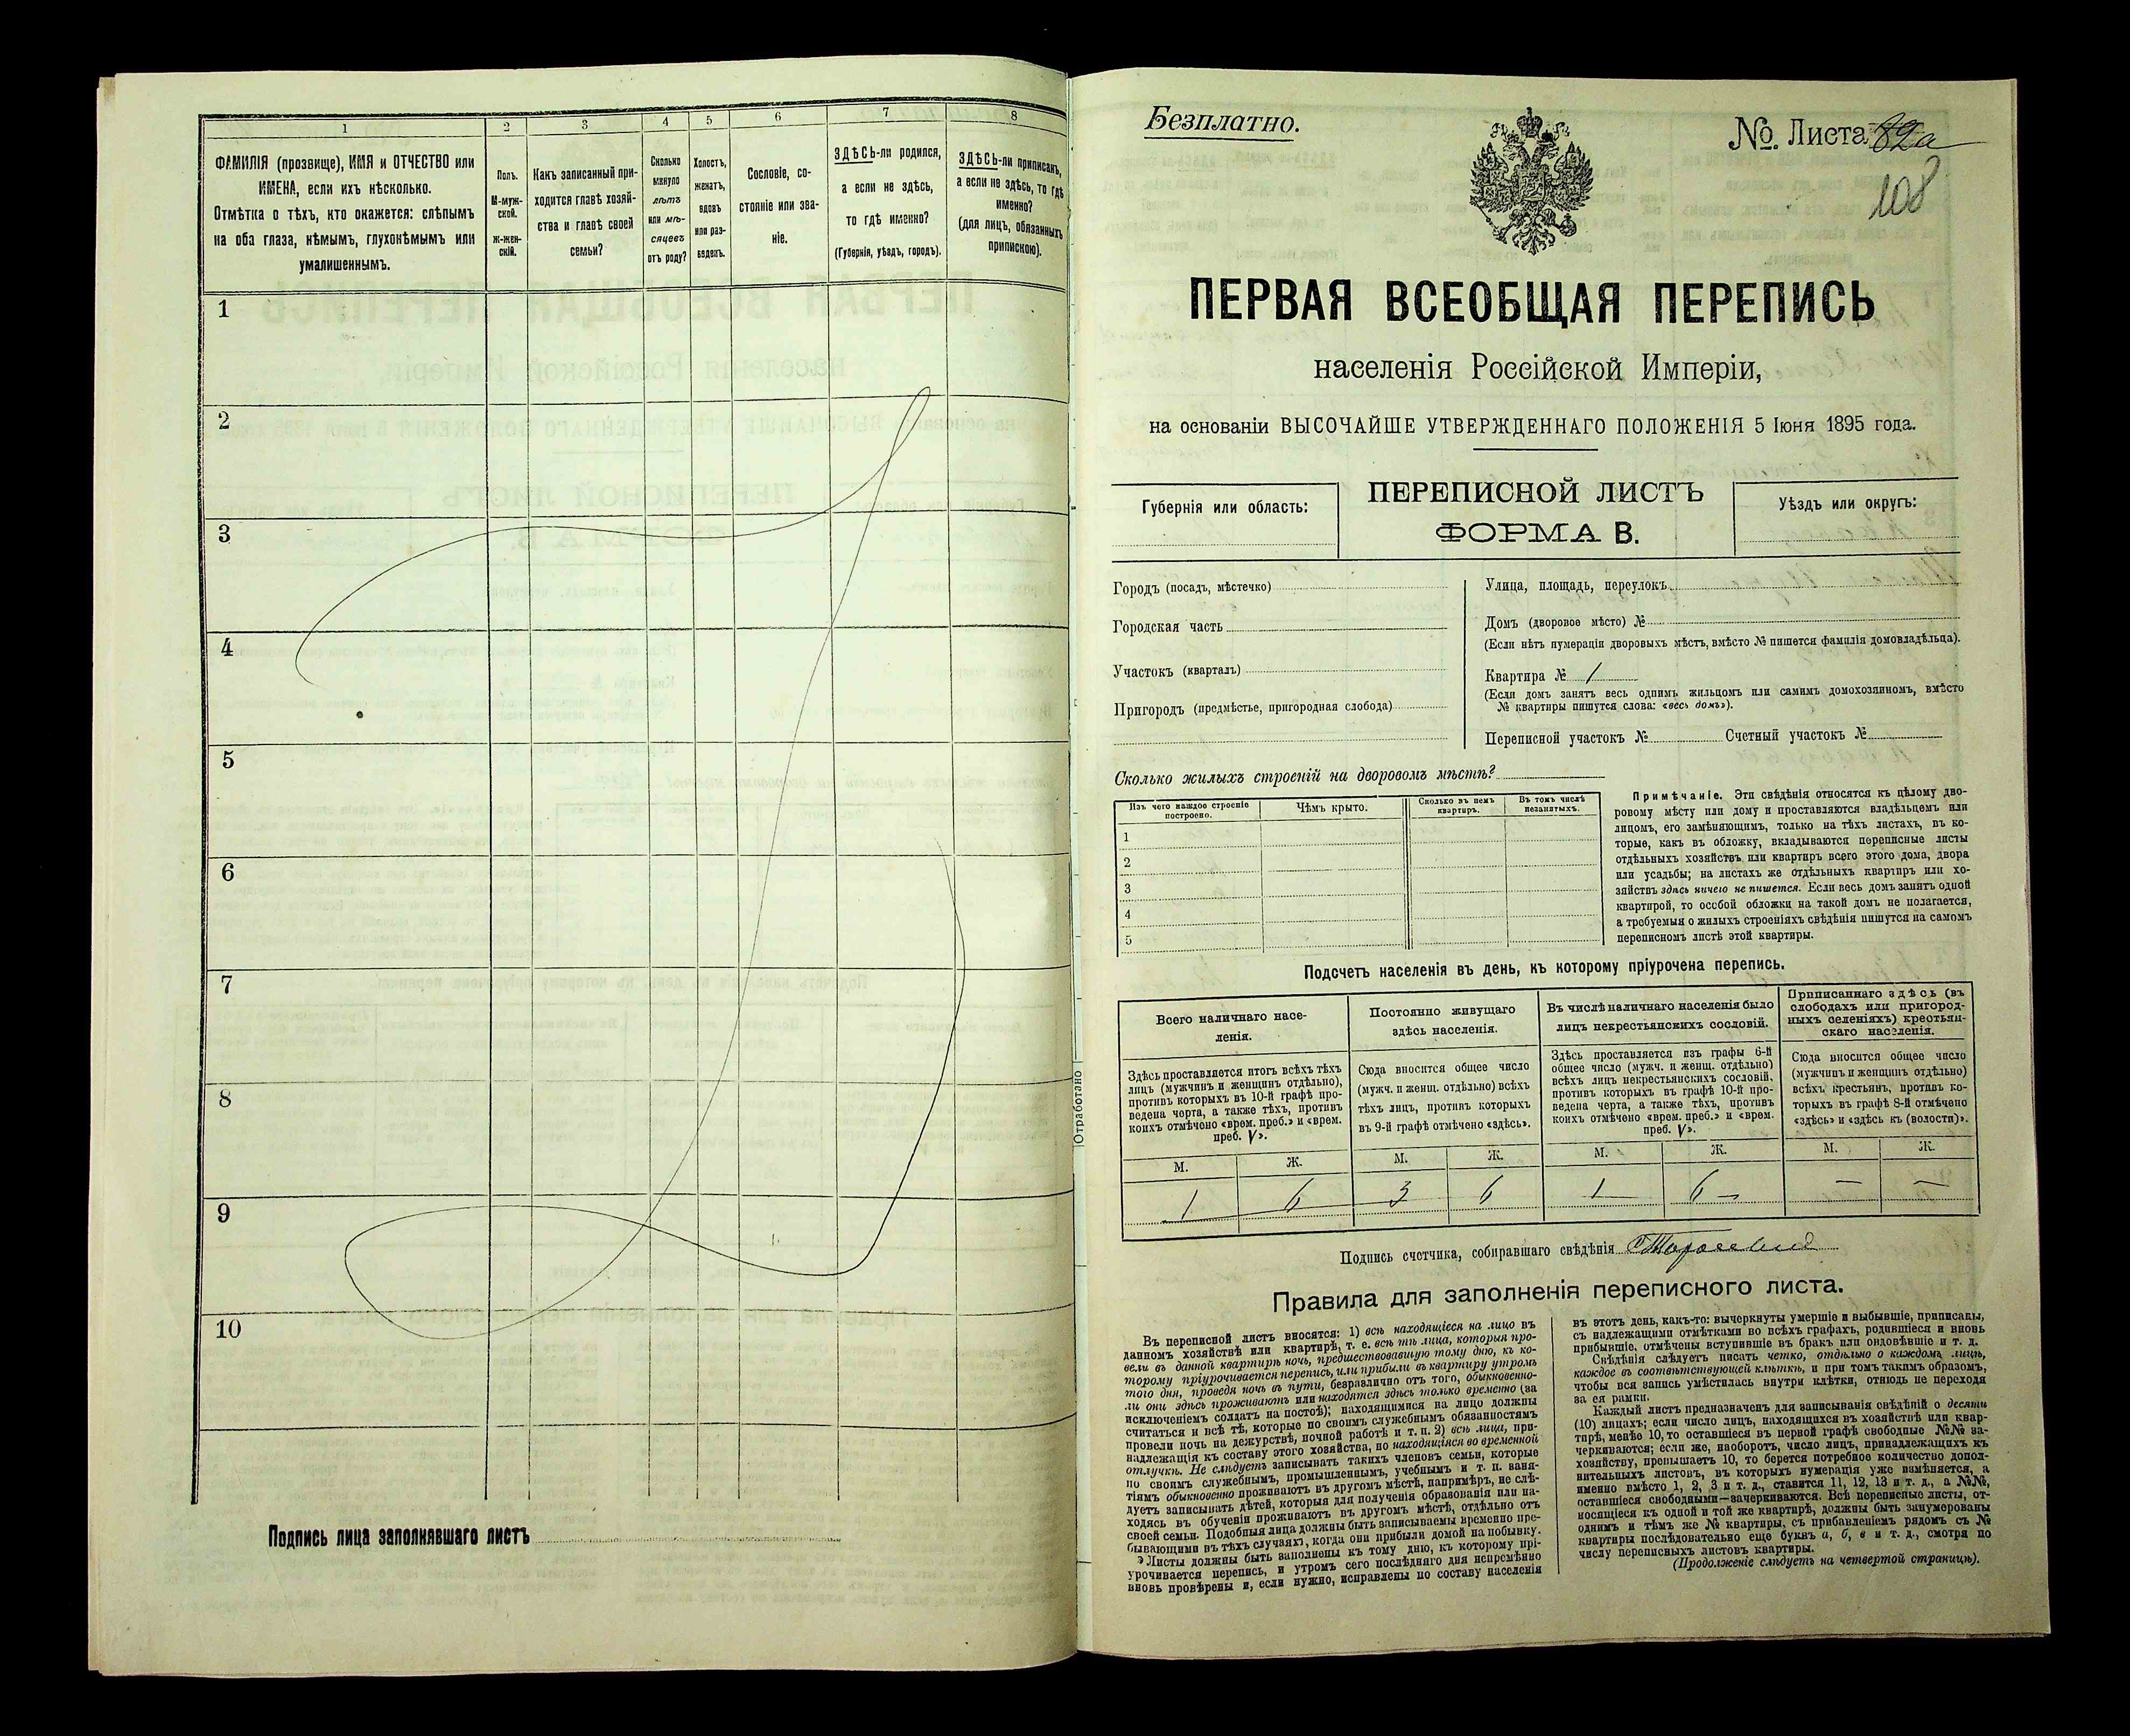 1
2
3
4
5
6
7
8
ФАМИЛІЯ (прозвище), ИМЯ и ОТЧЕСТВО или
ИМЕНА, если ихъ нѣсколько.
Отмѣтка о тѣхъ, кто окажется: слѣпымъ
на оба глаза, нѣмымъ, глухонѣмымъ или
умалишеннымъ.
Полъ.
М-муж-
ской.
Ж-жен-
скій.
Какъ записанный при-
ходится главѣ хозяй-
ства и главѣ своей
семьи?
Сколько
минуло
лѣтъ
или мѣ-
сяцевъ
отъ роду?
Холостъ,
женатъ,
вдовъ
или раз-
веденъ.
Сословіе, со-
стояніе или зва-
ніе.
ЗДѢСЬ-ли родился,
а если не здѣсь,
то гдѣ именно?
(Губернія, уѣздъ, городъ).
ЗДѢСЬ-ли приписанъ,
а если не здѣсь, то гдѣ
именно?
(для лицъ, обязанныхъ
припискою).
1
2
3
4
5
6
7
8
9
10
Подпись лица заполнявшаго листъ
Отработано
Безплатно.
№. Листа 82а
108
ПЕРВАЯ ВСЕОБЩАЯ ПЕРЕПИСЬ
населенія Россійской Имперіи,
на основаніи ВЫСОЧАЙШЕ УТВЕРЖДЕННАГО ПОЛОЖЕНІЯ 5 Іюня 1895 года.
Губернія или область:
ПЕРЕПИСНОЙ ЛИСТЪ
ФОРМА В.
Уѣздъ или округъ:
Городъ (посадъ, мѣстечко)
Городская часть
Участокъ (кварталъ)
Пригородъ (предмѣстье, пригородная слобода)
Улица, площадь, переулокъ
Домъ (дворовое мѣсто) №
(Если нѣтъ нумераціи дворовыхъ мѣстъ, вмѣсто № пишется фамилія домовладѣльца).
Квартира № 1
(Если домъ занятъ весь однимъ жильцомъ или самимъ домохозяиномъ, вмѣсто
№ квартиры пишутся слова: «весь домъ»).
Переписной участокъ № Счетный участокъ №
Сколько жилыхъ строеній на дворовомъ мѣстѣ?
Изъ чего каждое строеніе
построено.
Чѣмъ крыто.
Сколько въ немъ
квартиръ.
Въ томъ числѣ
незанятыхъ.
1
2
3
4
5
Примѣчаніе. Эти свѣдѣнія относятся къ цѣлому дво-
ровому мѣсту или дому и проставляются владѣльцемъ или
лицомъ, его замѣняющимъ, только на тѣхъ листахъ, въ ко-
торые, какъ въ обложку, вкладываются переписные листы
отдѣльныхъ хозяйствъ или квартиръ всего этого дома, двора
или усадьбы; на листахъ же отдѣльныхъ квартиръ или хо-
зяйствъ здѣсь ничего не пишется. Если весь домъ занятъ одной
квартирой, то особой обложки на такой домъ не полагается,
а требуемыя о жилыхъ строеніяхъ свѣдѣнія пишутся на самомъ
переписномъ листѣ этой квартиры.
Подсчетъ населенія въ день, къ которому пріурочена перепись.
Всего наличнаго насе-
ленія.
Постоянно живущаго
здѣсь населенія.
Въ числѣ наличнаго населенія было
лицъ некрестьянскихъ сословій.
Приписаннаго здѣсь (въ
слободахъ или пригород-
ныхъ селеніяхъ) крестьян-
скаго населенія.
Здѣсь проставляется итогъ всѣхъ тѣхъ
лицъ (мужчинъ и женщинъ отдѣльно),
противъ которыхъ въ 10-й графѣ про-
ведена черта, а также тѣхъ, противъ
коихъ отмѣчено «врем. преб.» и «врем.
преб. V».
Сюда вносится общее число
(мужч. и женщ. отдѣльно) всѣхъ
тѣхъ лицъ, противъ которыхъ
въ 9-й графѣ отмѣчено «здѣсь».
Здѣсь проставляется изъ графы 6-й
общее число (мужч. и женщ. отдѣльно)
всѣхъ лицъ некрестьянскихъ сословій,
противъ которыхъ въ графѣ 10-й про-
ведена черта, а также тѣхъ, противъ
коихъ отмѣчено «врем. преб.» и «врем.
преб. V».
Сюда вносится общее число
(мужчинъ и женщинъ отдѣльно)
всѣхъ крестьянъ, противъ ко-
торыхъ въ графѣ 8-й отмѣчено
«здѣсь» и «здѣсь къ (волости)».
М. Ж. М. Ж. М. Ж. М. Ж.
1 6 3 6 1 6 — — —
Подпись счетчика, собиравшаго свѣдѣнія
Правила для заполненія переписного листа.
Въ переписной листъ вносятся: 1) всѣ находящіеся на лицо въ
данномъ хозяйствѣ или квартирѣ, т. е. всѣ тѣ лица, которыя про-
вели въ данной квартирѣ ночь, предшествовавшую тому дню, къ ко-
торому пріурочивается перепись, или прибыли въ квартиру утромъ
того дня, проведя ночь въ пути, безразлично отъ того, обыкновенно-
ли они здѣсь проживаютъ или находятся здѣсь только временно (за
исключеніемъ солдатъ на постоѣ); находящимися на лицо должны
считаться и всѣ тѣ, которые по своимъ служебнымъ обязанностямъ
провели ночь на дежурствѣ, ночной работѣ и т. п. 2) всѣ лица, при-
надлежащія къ составу этого хозяйства, но находящіяся во временной
отлучкѣ. Не слѣдуетъ записывать такихъ членовъ семьи, которые
по своимъ служебнымъ, промышленнымъ, учебнымъ и т. п. заня-
тіямъ обыкновенно проживаютъ въ другомъ мѣстѣ, напримѣръ, не слѣ-
дуетъ записывать дѣтей, которыя для полученія образованія или на-
ходясь въ обученіи проживаютъ въ другомъ мѣстѣ, отдѣльно отъ
своей семьи. Подобныя лица должны быть записываемы временно пре-
бывающими въ тѣхъ случаяхъ, когда они прибыли домой на побывку.
Листы должны быть заполнены къ тому дню, къ которому прі-
урочивается перепись, и утромъ сего послѣдняго дня непремѣнно
вновь провѣрены и, если нужно, исправлены по составу населенія
въ этотъ день, какъ-то: вычеркнуты умершіе и выбывшіе, приписаны,
съ надлежащими отмѣтками во всѣхъ графахъ, родившіеся и вновь
прибывшіе, отмѣчены вступившіе въ бракъ или овдовѣвшіе и т. д.
Свѣдѣнія слѣдуетъ писать четко, отдѣльно о каждомъ лицѣ,
каждое въ соотвѣтствующей клѣткѣ, и при томъ такимъ образомъ,
чтобы вся запись умѣстилась внутри клѣтки, отнюдь не переходя
за ея рамки.
Каждый листъ предназначенъ для записыванія свѣдѣній о десяти
(10) лицахъ; если число лицъ, находящихся въ хозяйствѣ или квар-
тирѣ, менѣе 10, то оставшіеся въ первой графѣ свободные №№ за-
черкиваются; если же, наоборотъ, число лицъ, принадлежащихъ къ
хозяйству, превышаетъ 10, то берется потребное количество допол-
нительныхъ листовъ, въ которыхъ нумерація уже измѣняется, а
именно вмѣсто 1, 2, 3 и т. д., ставится 11, 12, 13 и т. д., а №№,
оставшіеся свободными—зачеркиваются. Всѣ переписные листы, от-
носящіеся къ одной и той же квартирѣ, должны быть занумерованы
однимъ и тѣмъ же № квартиры, съ прибавленіемъ рядомъ съ №
квартиры послѣдовательно еще буквъ а, б, в и т. д., смотря по
числу переписныхъ листовъ квартиры.
(Продолженіе слѣдуетъ на четвертой страницѣ).